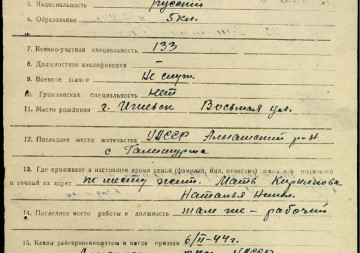 5. Национальность русский
6. Образование 5 кл.
7. Военно-учетная специальность 133
8. Должностная квалификация —
9. Военное звание Не служ.
10. Гражданская специальность нет
11. Место рождения г. Ижевск Восьмая ул.
12. Последнее место жительства УАССР Алнашский р-н
с
13. Где проживает в настоящее время семья (фамилия, имя, отчество) жены или родителей
и точный их адрес по месту жит. Мать Кириллова
Наталья
14. Последнее место работы и должность там же — рабочий
15. Каким райвоенкоматом и когда призван 6/II-44г.